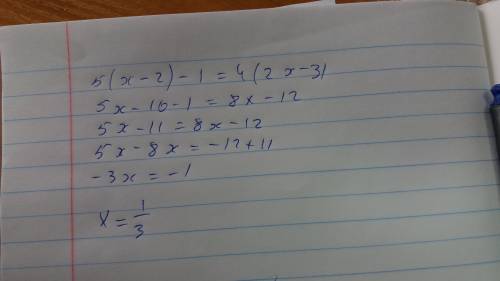 5(x-2)-1=4(2x-3)
5x-10-1=8x-12
5x-11=8x-12
5x-8x=-12+11
-3x=-1
x=1/3